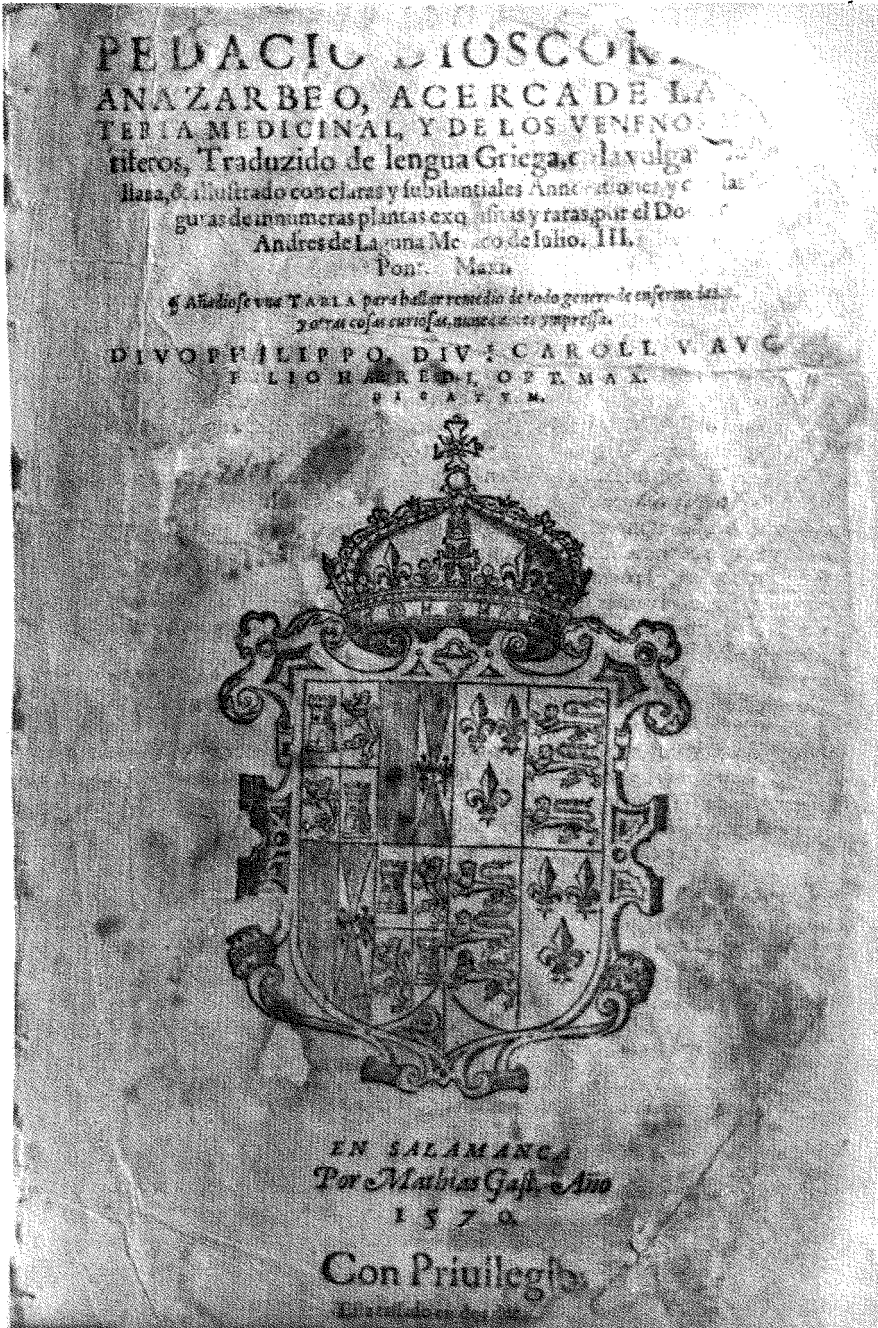 PEDACIO DIOSCOR
ANAZARBEO, ACERCA DE LA
TERIA MEDICINAL, Y DE LOS VENENOS
tiferos, Traduzido de lengua Griega, en la vulgar
llana, & illustrado con claras y substantiales Annotationes, y con las
guras de innumeras plantas exquisitas y raras, por el Do
Andres de Laguna Medico de Iulio. III.
Pont. Maxi.
¶ Añadiose vna TABLA para hallar remedio de todo genero de enfermedades
y otras cosas curiosas, nunca antes ympressa.
DIVO PHILIPPO, DIVI CAROLI V. AVG
FILIO HAEREDI, OPT. MAX.
DICATVM.
EN SALAMANCA
Por Mathias Gast. Año
1570.
Con Priuilegio.